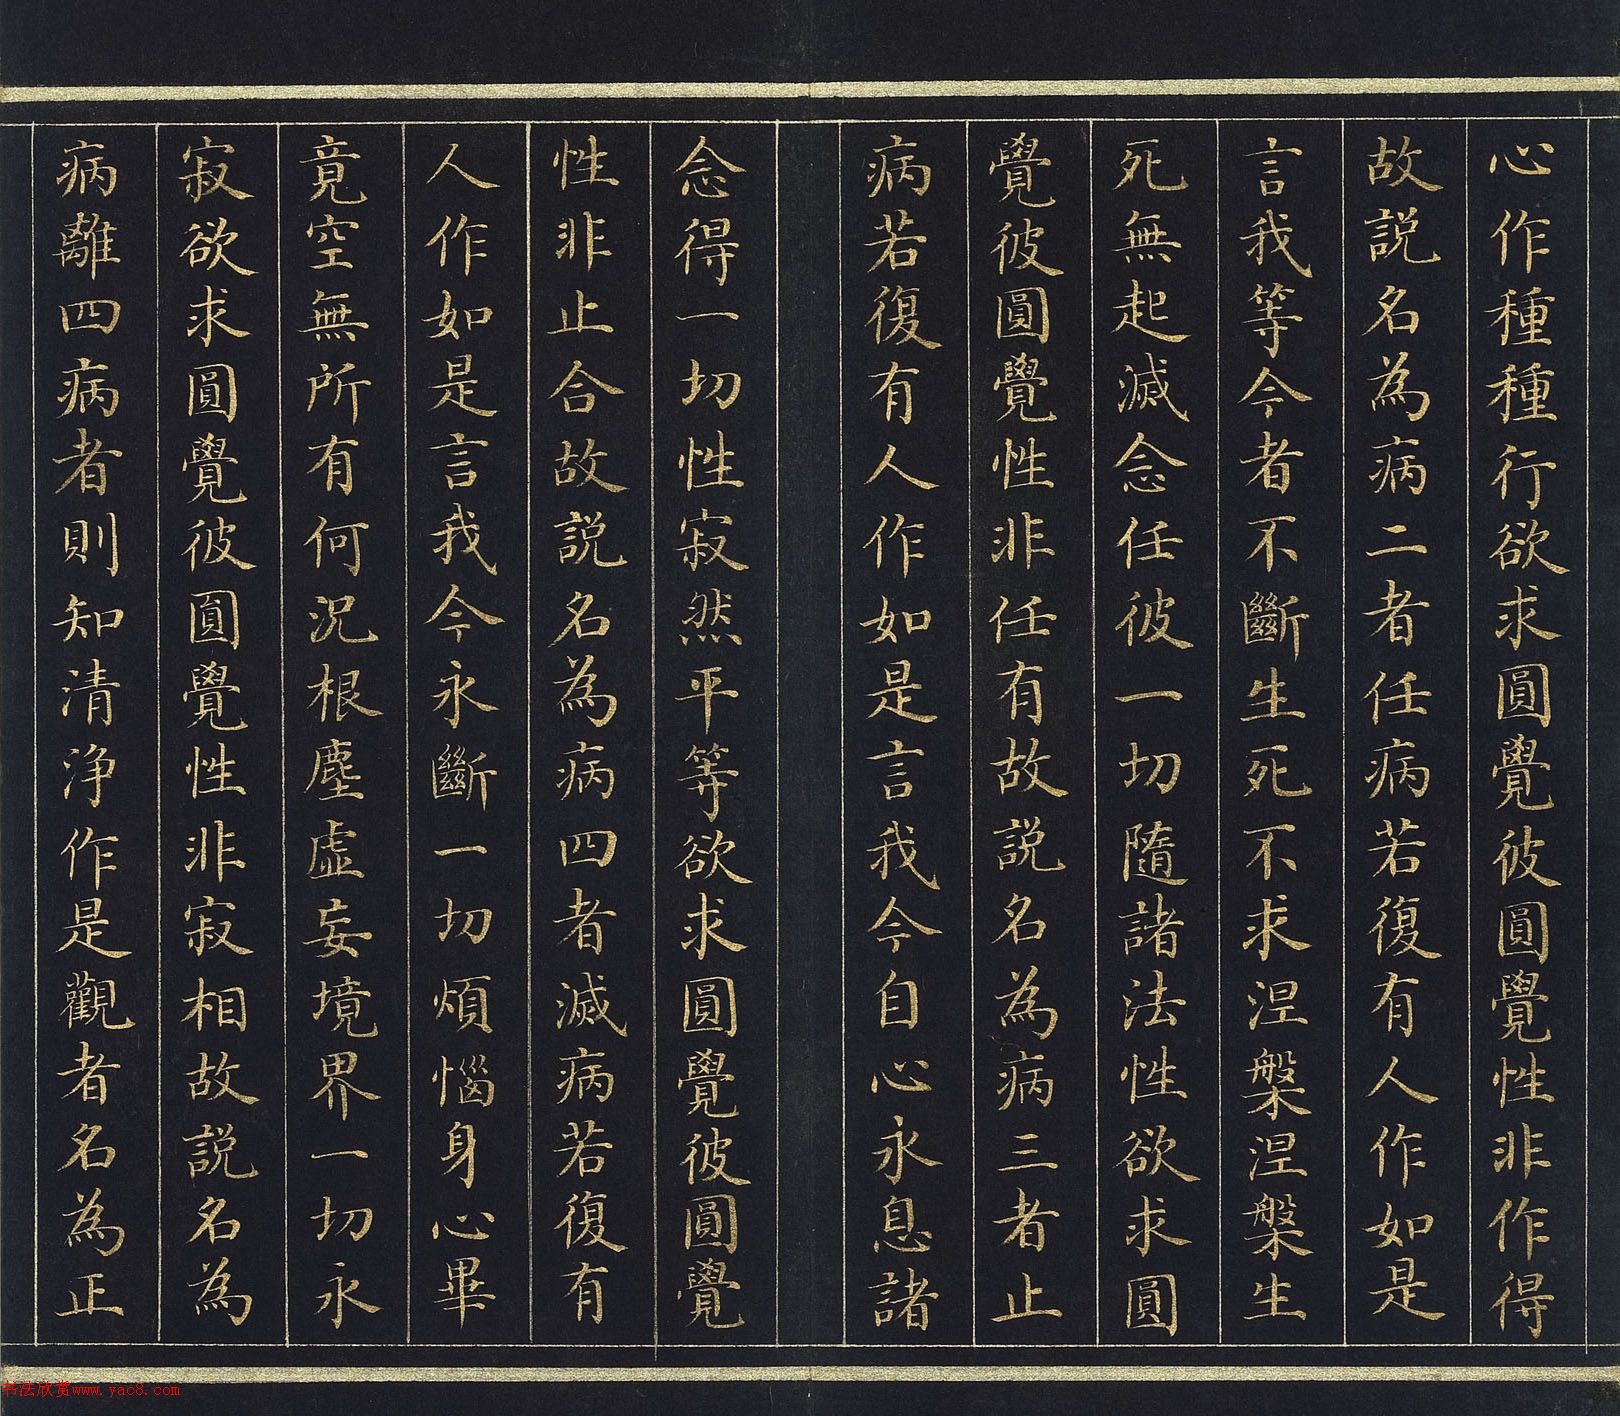 心作種種行欲求圓覺彼圓覺性非作得
故説名為病二者任病若復有人作如是
言我等今者不斷生死不求涅槃涅槃生
死無起滅念任彼一切隨諸法性欲求圓
覺彼圓覺性非任有故説名為病三者止
病若復有人作如是言我今自心永息諸
念得一切性寂然平等欲求圓覺彼圓覺
性非止合故説名為病四者滅病若復有
人作如是言我今永斷一切煩惱身心畢
竟空無所有何況根塵虛妄境界一切永
寂欲求圓覺彼圓覺性非寂相故説名為
病離四病者則知清淨作是觀者名為正
书法欣赏www.yac8.com